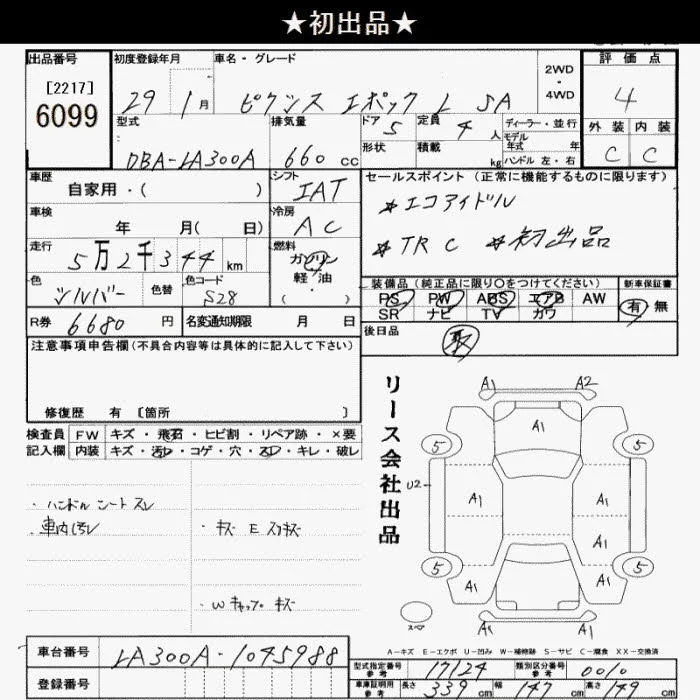 ★初出品★
出品番号
[2217]
6099
初度登録年月
29年 1月
車名・グレード
ピクシス エポック L SA
2WD
・
4WD
評価点
4
外装 内装
C C
型式
DBA-LA300A
排気量
660 cc
ドア 5
形状
定員 4人
積載 kg
ディーラー・並行
モデル
年式 年
ハンドル 左・右
車歴
自家用・( )
シフト
IAT
セールスポイント (正常に機能するものに限ります)
*エコアイドル
*TRC *初出品
車検
年 月( 日)
冷房
AC
走行
5万2千344km
燃料
ガソリン
軽・油
( ・ )
色
シルバー
色替
色コード
S28
装備品 (純正品に限り○をつけてください)
PS PW ABS エアB AW
SR ナビ TV カワ
新車保証書
有 無
R券 6680 円
名変通知期限 月 日
後日品
取
注意事項申告欄 (不具合内容等は具体的に記入して下さい)
修復歴 有 [箇所 ]
検査員
記入欄
FW キズ・飛石・ヒビ割・リペア跡・×要
内装 キズ・汚れ・コゲ・穴・スレ・キレ・破レ
・ハンドル シート スレ
車内汚レ
・キズ E スリキズ
・Wキャップ キズ
リース会社出品
A1 A2
A1
5 5
U2
A1 A1
A1
5 5
A1 A1
A1 A1
スペア
A-キズ E-エクボ U-凹み W-補修跡 S-サビ C-腐食 XX-交換済
車台番号
LA300A-1045988
登録番号
型式指定番号
参考
17124
類別区分番号
参考
0010
車庫証明用
参考
長さ 339 cm
幅 147 cm
高さ 149 cm